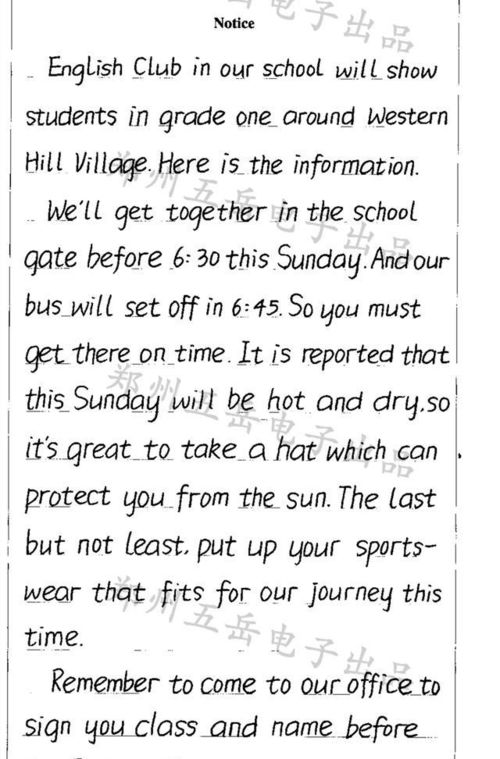 Notice
English Club in our school will show
students in grade one around Western
Hill Village. Here is the information.
We'll get together in the school
gate before 6:30 this Sunday. And our
bus will set off in 6:45. So you must
get there on time. It is reported that
this Sunday will be hot and dry, so
it's great to take a hat which can
protect you from the sun. The last
but not least, put up your sports-
wear that fits for our journey this
time.
Remember to come to our office to
sign you class and name before
郑州五岳电子出品
郑州五岳电子出品
郑州五岳电子出品